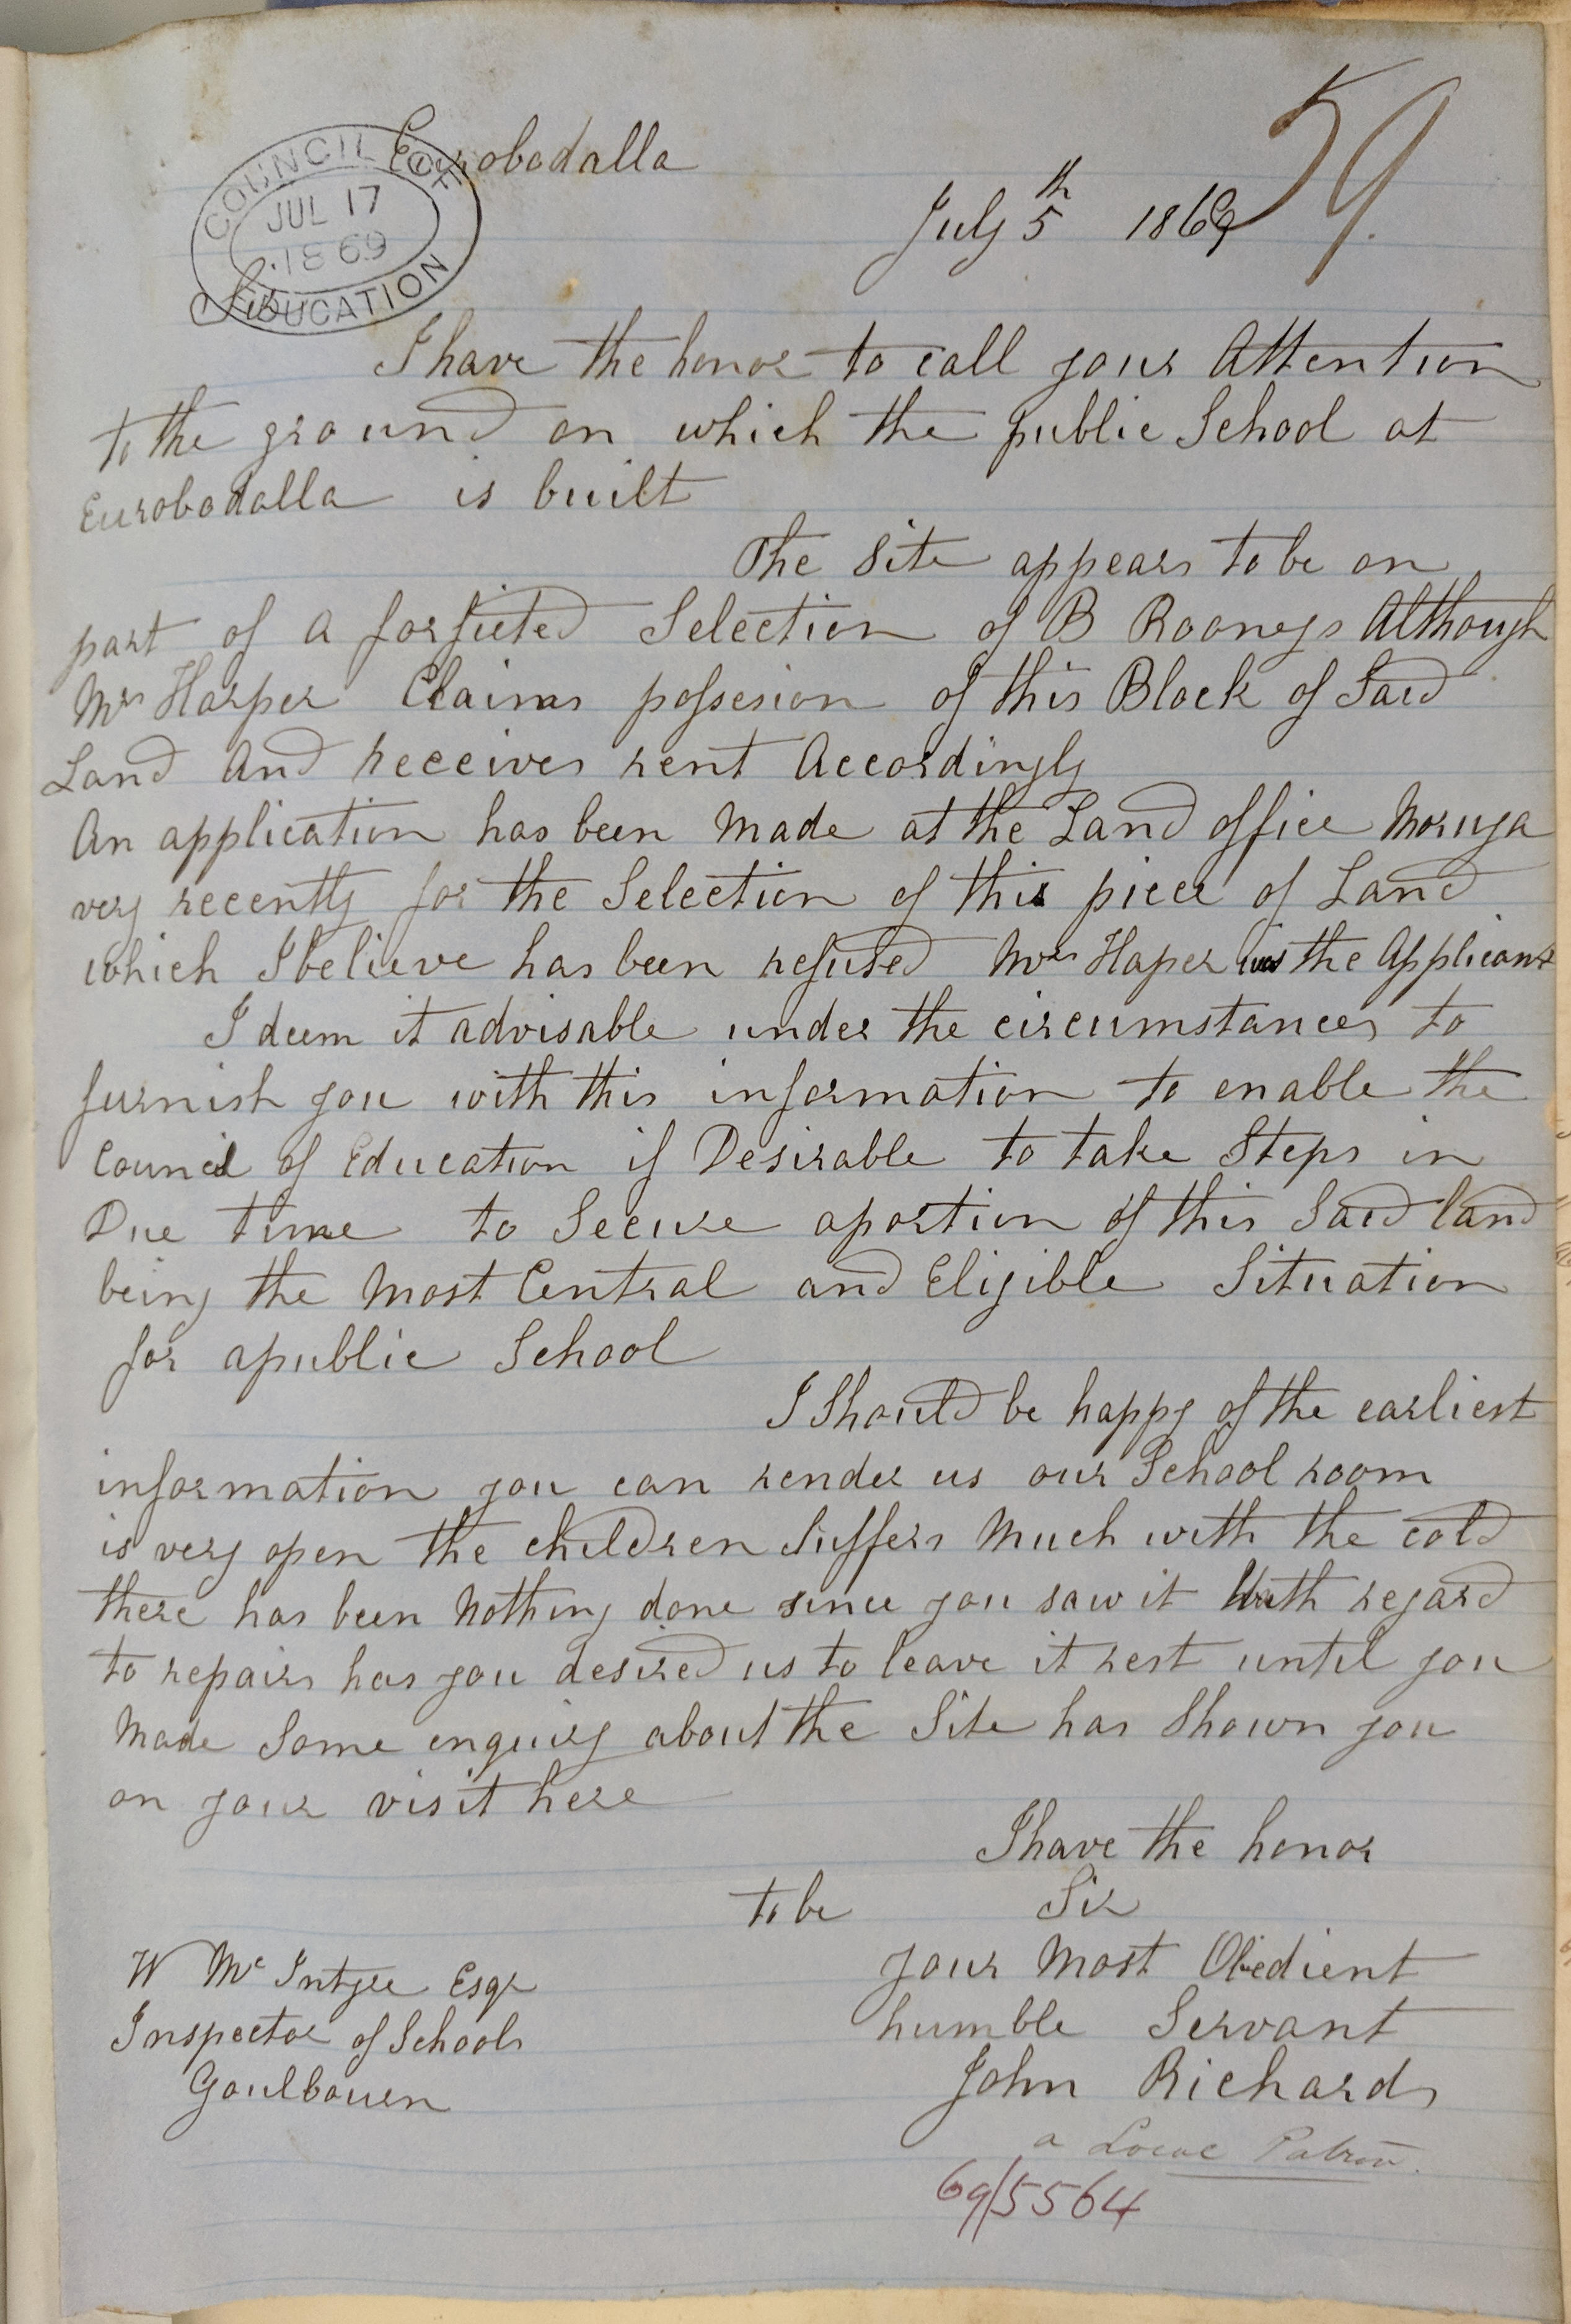 59.
Eurobodalla
COUNCIL OF EDUCATION
JUL 17
1869
July 5th 1869
Sir
I have the honor to call your Attention
to the ground on which the public School at
Eurobodalla is built
The Site appears to be on
part of a forfieted Selection of B Rooneys Although
Mrs Harper Claims possesion of this Block of Said
Land And receives rent Accordingly
An application has been Made at the Land office Moruya
very recently for the Selection of this piece of Land
which I believe has been refused Mrs Haper was the Applicant
I deem it advisable under the circumstances to
furnish you with this information to enable the
Council of Education if Desirable to take Steps in
Due time to Secure aportion of this Said land
being the Most Central and Eligible Situation
for apublic School
I Should be happy of the earliest
information you can render us our School room
is very open the children Suffers Much with the cold
there has been Nothing done since you saw it With regard
to repairs has you desired us to leave it rest until you
Made Some enquiry about the Site has Shown you
on your visit here
I have the honor
to be Sir
your Most Obedient
humble Servant
John Richards
a Local Patron.
W Mc Intyre Esqr
Inspector of Schools
Goulbourn
69/5564